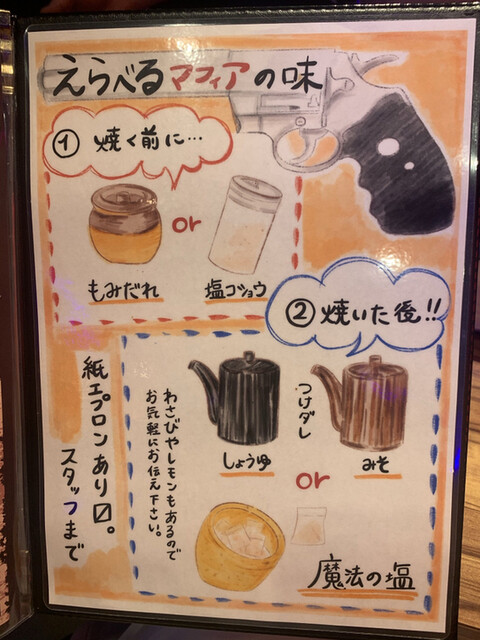 えらべるマフィアの味
① 焼く前に…
もみだれ
or
塩コショウ
② 焼いた後!!
しょうゆ
つけダレ
みそ
or
魔法の塩
わさびやレモンもあるので
お気軽にお伝え下さい。
紙エプロンあり〼。
スタッフまで